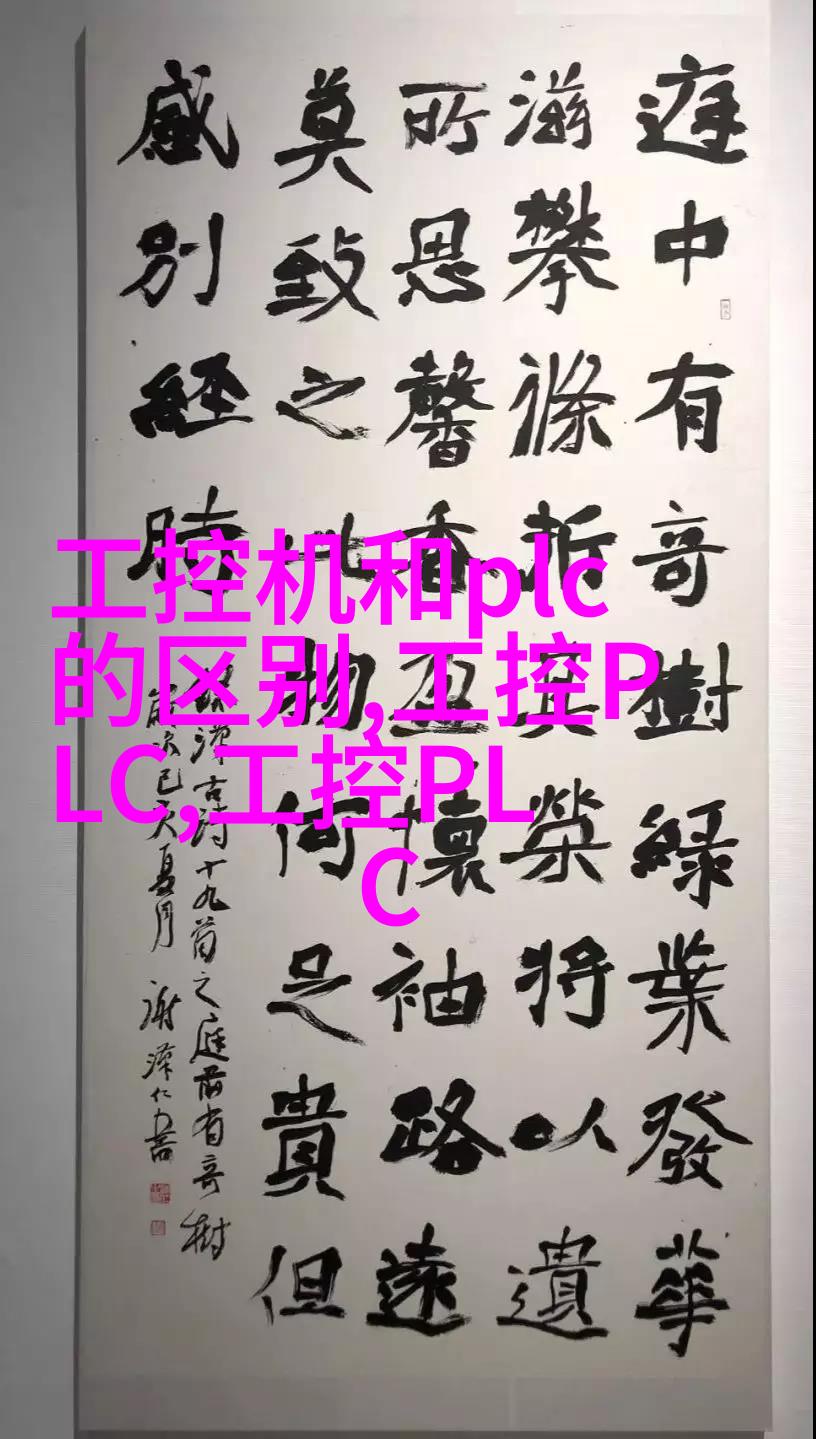 庭中有奇樹緑葉發華
滋攀條折其榮將以遺
所思馨香盈懷袖路遠
莫致之此物何足貴但
感別經時
漢古詩十九首之庭前有奇樹
己亥夏月 謝澤仁書
工控机和plc
的区别,工控P
LC,工控PL
C